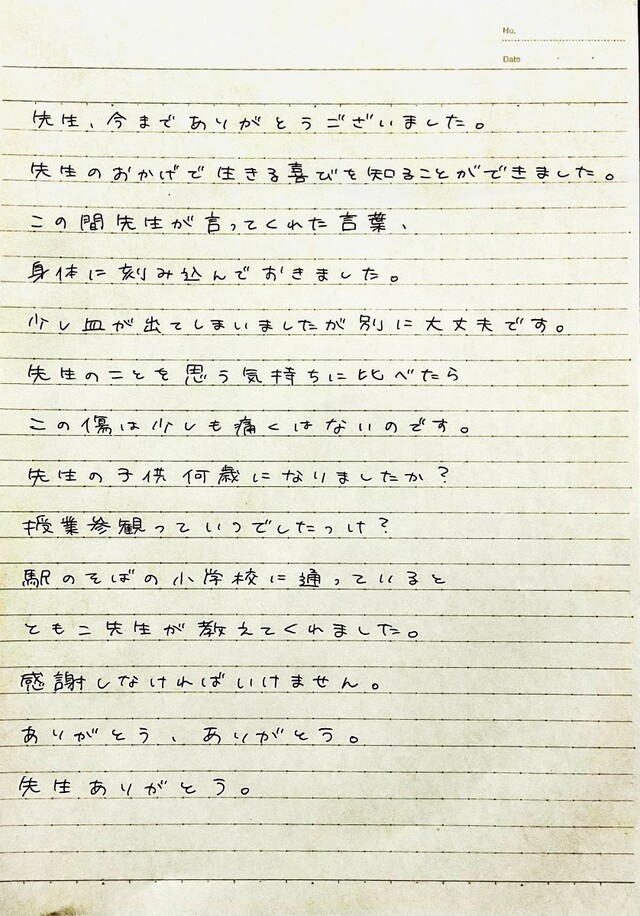 No.
Date
先生、今までありがとうございました。
先生のおかげで生きる喜びを知ることができました。
この間先生が言ってくれた言葉、
身体に刻み込んでおきました。
少し血が出てしまいましたが別に大丈夫です。
先生のことを思う気持ちに比べたら
この傷は少しも痛くはないのです。
先生の子供何歳になりましたか?
授業参観っていつでしたっけ?
駅のそばの小学校に通っていると
ともこ先生が教えてくれました。
感謝しなければいけません。
ありがとう、ありがとう。
先生ありがとう。